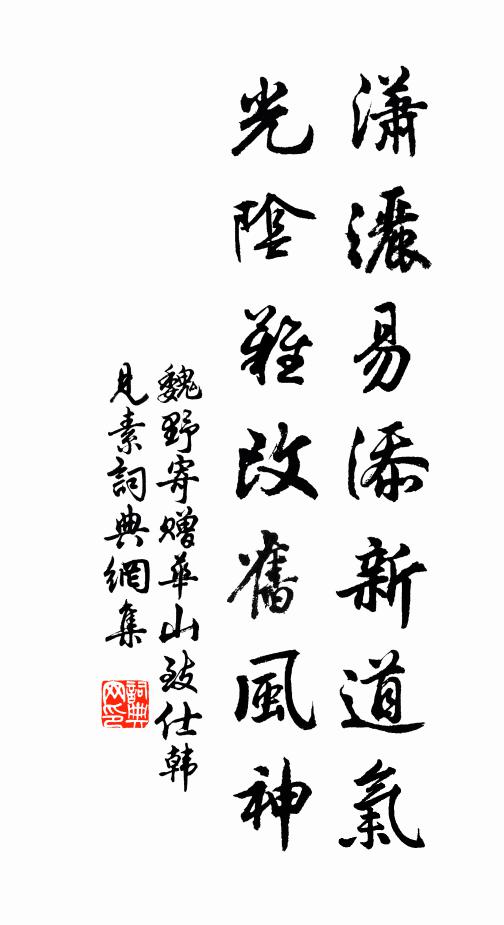 瀟灑易添新道氣
光陰難改舊風神
魏野寄贈華山致仕韩
見素詞典網集
詞典网印